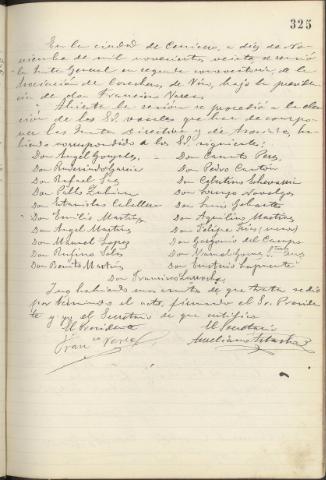 325
En la ciudad de Cenicero, a diez de No-
viembre de mil novecientos veinte, se reunió
la Junta General en segunda convocatoria, de la
Asociación de Cosecheros de Vino, bajo la presiden-
cia de don Francisco
Abierta la sesión se procedió a la elec-
ción de los SS. vocales que han de compo-
ner las Junta Directiva y de Asociados, ha-
biendo correspondido a los SS. siguientes:
Don Angel González - Don Canuto Pérez
Don García Don Pedro Cantón
Don Rafael Don Celestino
Don Pablo Don Lorenzo
Don Estanislao Caballero Don Luis
Don Emilio Martínez Don Agustin Martínez
Don Angel Martínez Don Felipe Frías
Don Manuel López Don Gregorio del Campo
Don Rufino Don Manuel
Don Benito Martínez Don Eustasio Lafuente
Don Francisco
Y no habiendo mas asuntos de que tratar se dió
por terminado el acto, firmando el Sr. Presiden-
te y yo el Secretario de que certifico
El Presidente El Secretario
Franco Aureliano